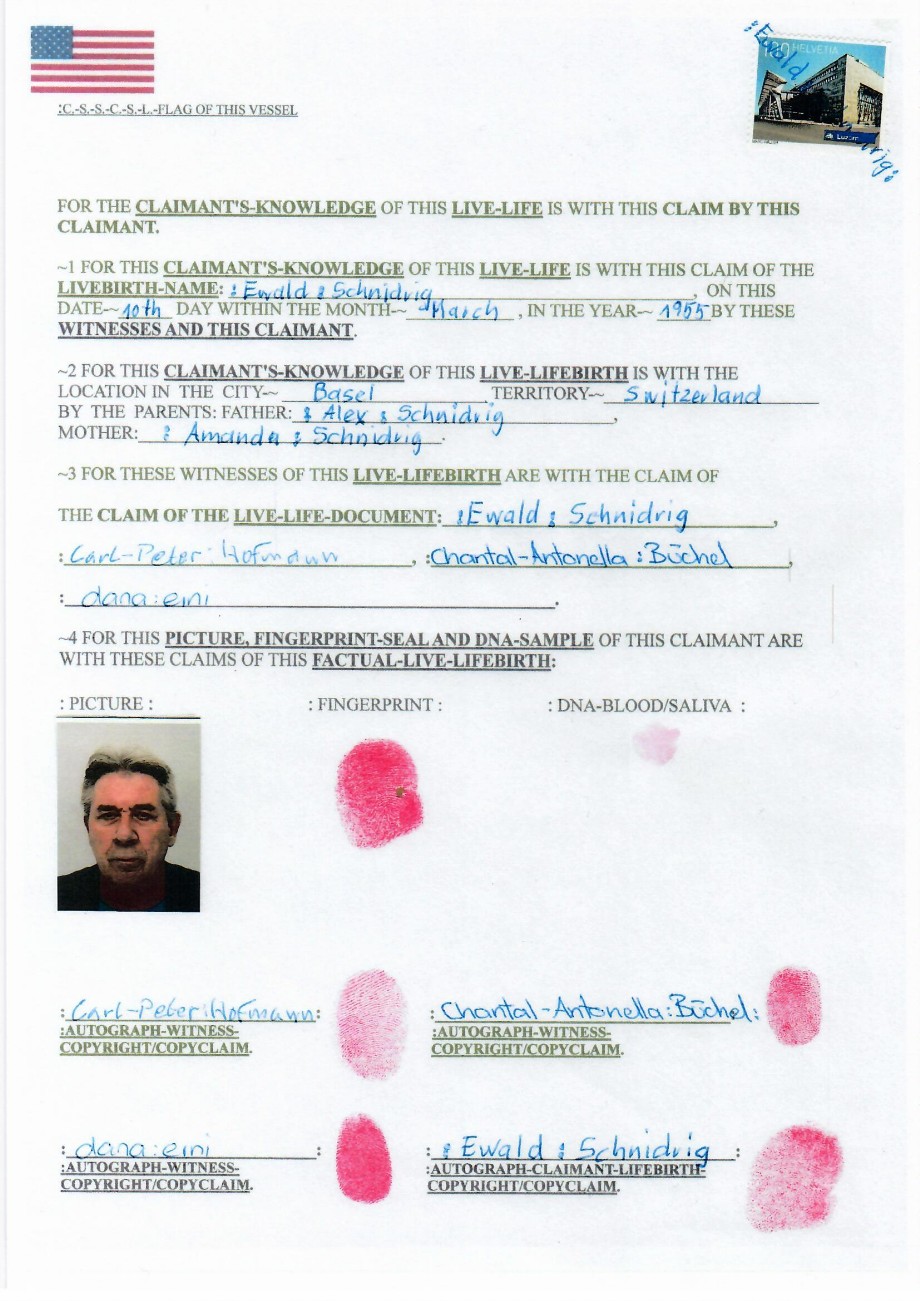 :Ewald
120 HELVETIA
Luzern
:C.-S.-S.-C.-S.-L.-FLAG OF THIS VESSEL
FOR THE CLAIMANT'S-KNOWLEDGE OF THIS LIVE-LIFE IS WITH THIS CLAIM BY THIS
CLAIMANT.
~1 FOR THIS CLAIMANT'S-KNOWLEDGE OF THIS LIVE-LIFE IS WITH THIS CLAIM OF THE
LIVEBIRTH-NAME: : Ewald : Schnidrig , ON THIS
DATE~ 10th DAY WITHIN THE MONTH-~ March , IN THE YEAR-~ 1955 BY THESE
WITNESSES AND THIS CLAIMANT.
~2 FOR THIS CLAIMANT'S-KNOWLEDGE OF THIS LIVE-LIFEBIRTH IS WITH THE
LOCATION IN THE CITY-~ Basel , TERRITORY-~ Switzerland
BY THE PARENTS: FATHER: : Alex : Schnidrig ,
MOTHER: : Amanda : Schnidrig .
~3 FOR THESE WITNESSES OF THIS LIVE-LIFEBIRTH ARE WITH THE CLAIM OF
THE CLAIM OF THE LIVE-LIFE-DOCUMENT: :Ewald : Schnidrig ,
: Carl-Peter:Hofmann , :Chantal-Antonella:Büchel ,
: dana:emi .
~4 FOR THIS PICTURE, FINGERPRINT-SEAL AND DNA-SAMPLE OF THIS CLAIMANT ARE
WITH THESE CLAIMS OF THIS FACTUAL-LIVE-LIFEBIRTH:
: PICTURE : : FINGERPRINT : : DNA-BLOOD/SALIVA :
: Carl-Peter:Hofmann: : Chantal-Antonella:Büchel:
:AUTOGRAPH-WITNESS- :AUTOGRAPH-WITNESS-
COPYRIGHT/COPYCLAIM. COPYRIGHT/COPYCLAIM.
: dana:emi : : : Ewald : Schnidrig :
:AUTOGRAPH-WITNESS- :AUTOGRAPH-CLAIMANT-LIFEBIRTH-
COPYRIGHT/COPYCLAIM. COPYRIGHT/COPYCLAIM.